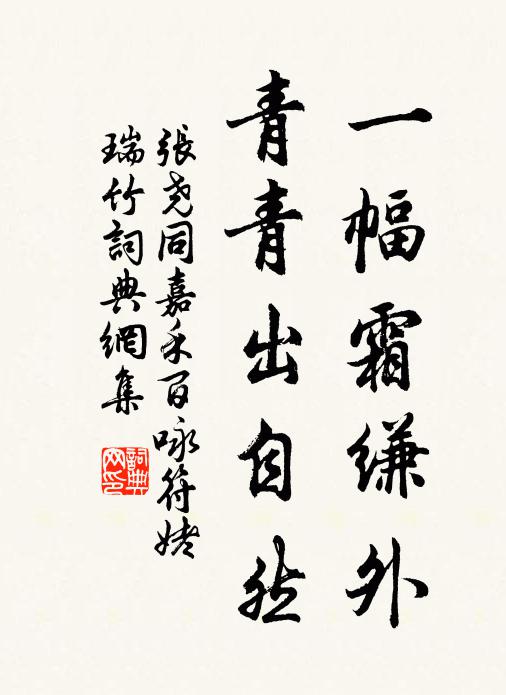 一幅霜縑外
青青出自然
張堯同嘉禾百咏符姥
瑞竹詞典網集
詞典网印